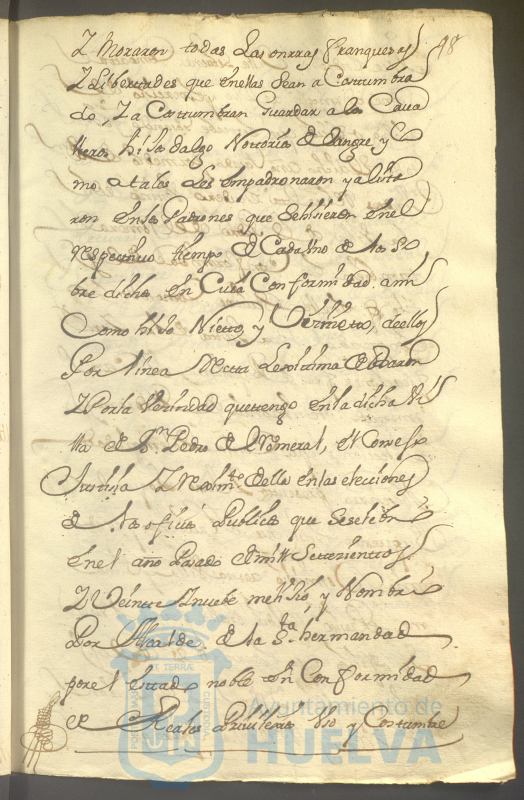 Y Moraron todas Las onrras franquesas 48
Y Libertades que en ellas Sean a Costumbra
do, Y a Costumbran Guardar a los Cava
lleros hijosdalgo Nottorios de Sangre, y Co
mo atales Les empadronaron y alista
ron en los Padrones que Sehisieron en el
respectivo tiempo de Cada Uno de los So
bre dichos en Cuia Conformidad ami
Como hijo Nietto, y Visnietto, de ellos
Por linea Rectta Lexittima de Varon
Y Por la Vesindad que tengo en la dicha Vi
lla de Sn. Pedro de el Romeral, el Consejo
Justisia Y Rexim.to de ella en las elecciones
de los ofisios Publicos que Se selebro
en el año Pasado de mill Settezienttos
Y Veintte Y nuebe me hiso, y Nombro
Por Alcalde de la S.ta hermandad
por el esttado noble en Conformidad
de Reales Privilexios Vso y Costumbre
Ayuntamiento de
HUELVA